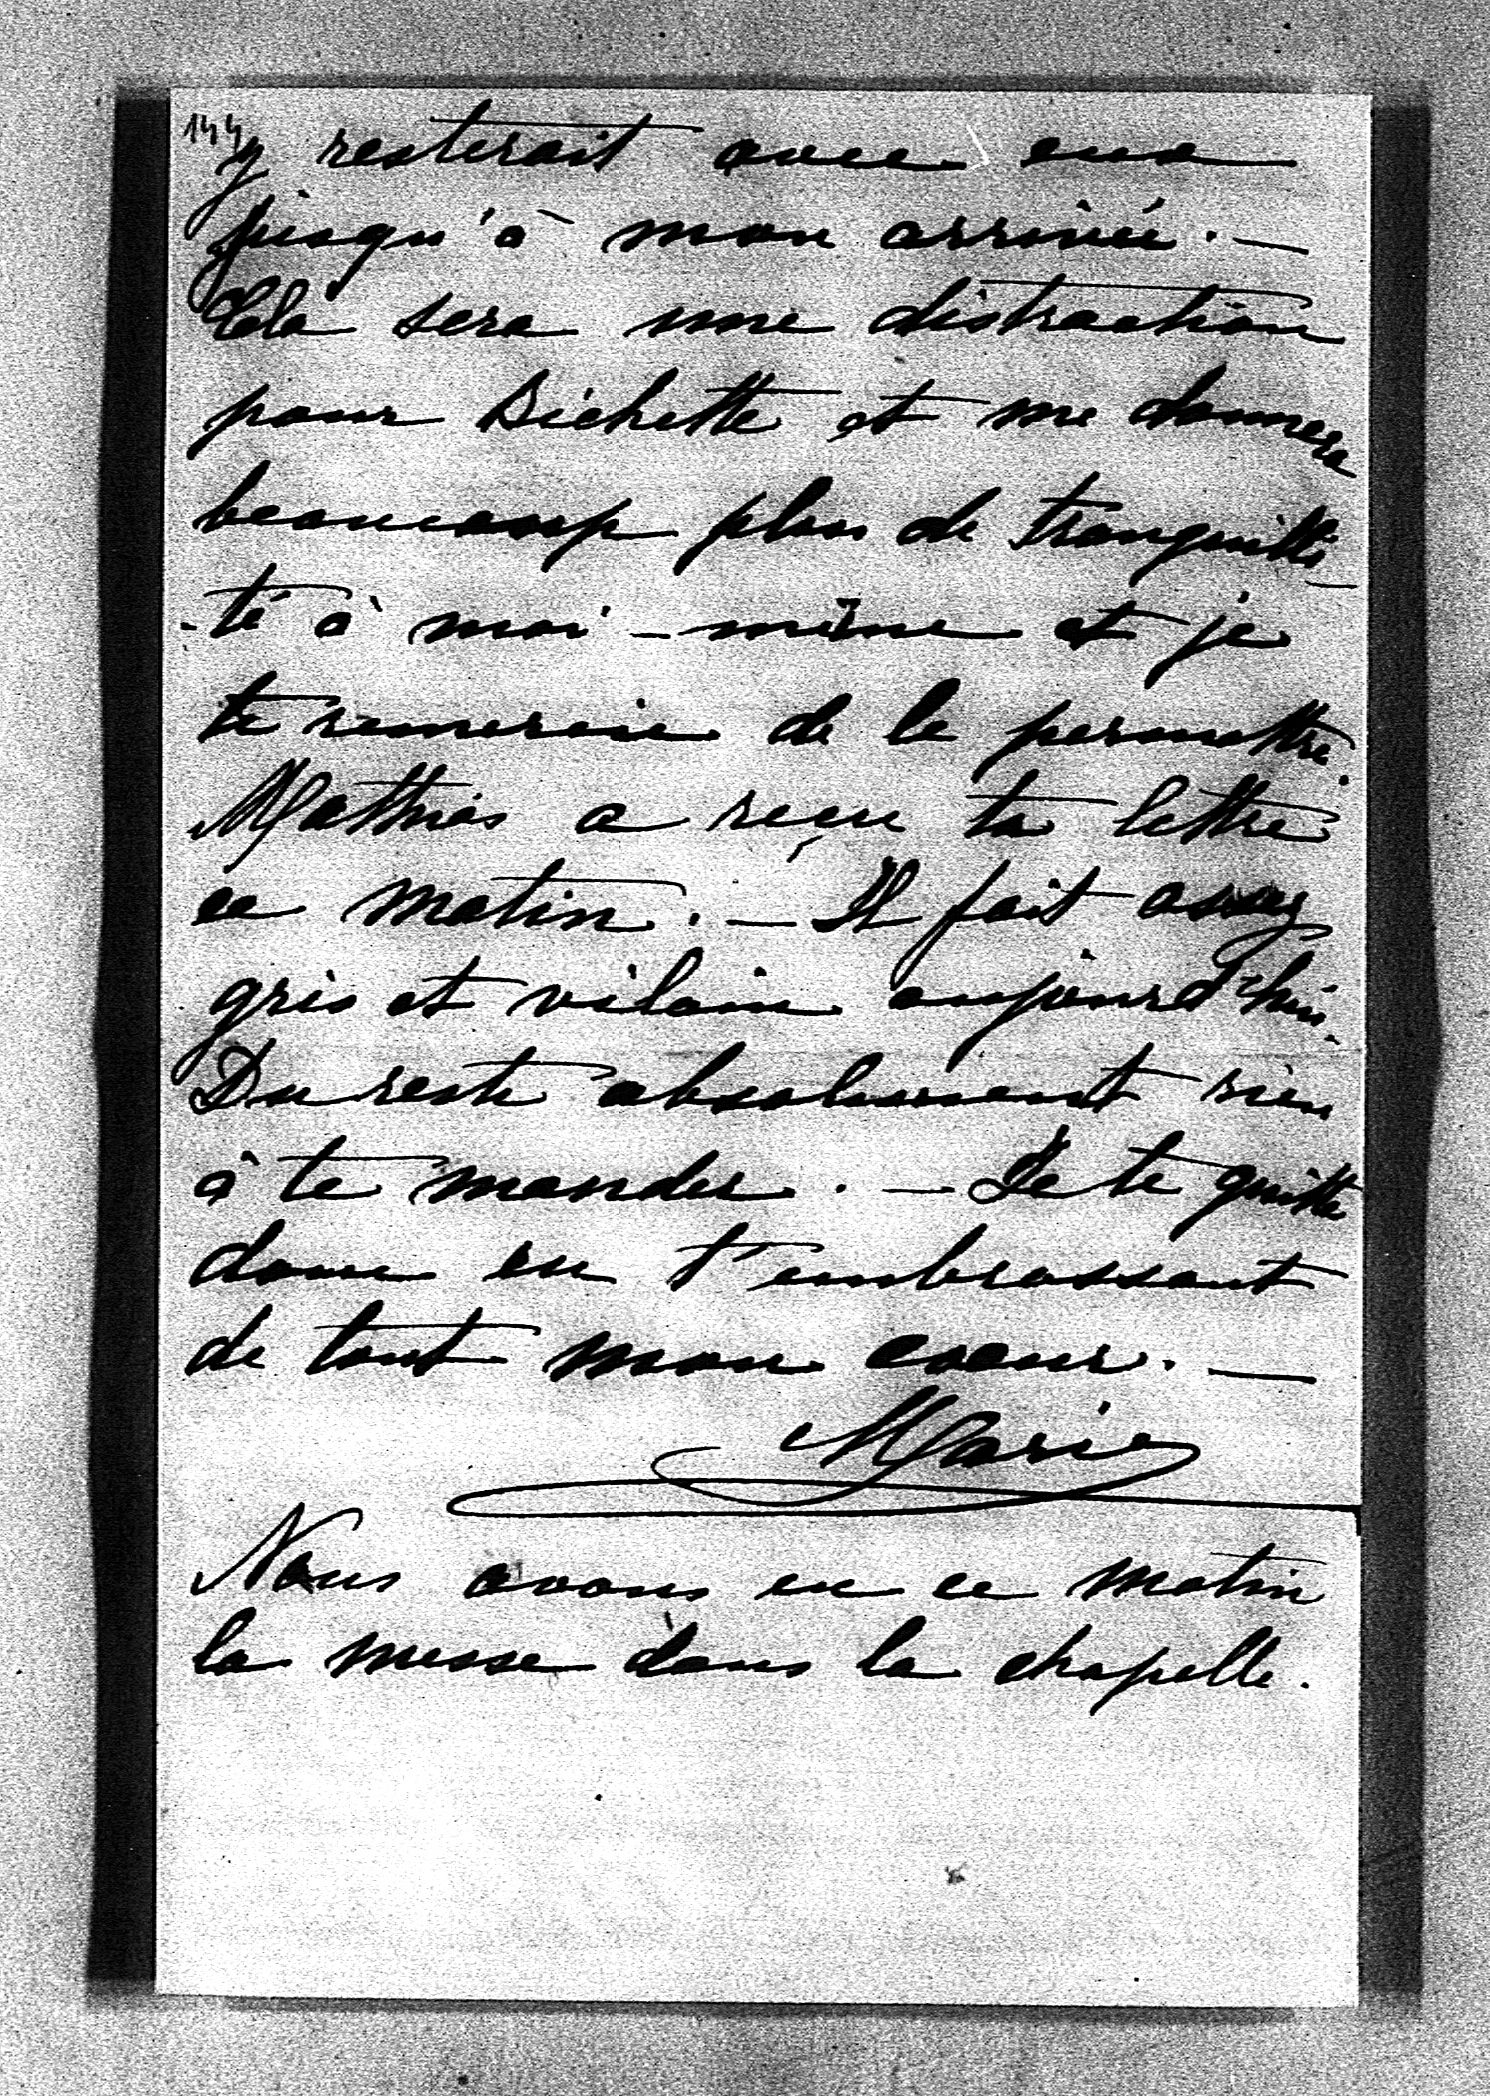 144
y resterait avec eux
jusqu'à mon arrivée. —
Cela sera une distraction
pour Bichette et me donnera
beaucoup plus de tranquilli-
-té à moi-même et je
te remercie de le permettre.
Mathias a reçu ta lettre
ce matin. — Il fait assez
gris et vilain aujourd'hui.
Du reste absolument rien
à te mander. — Je te quitte
donc en t'embrassant
de tout mon coeur. —
Marie
Nous avons eu ce matin
la messe dans la chapelle.